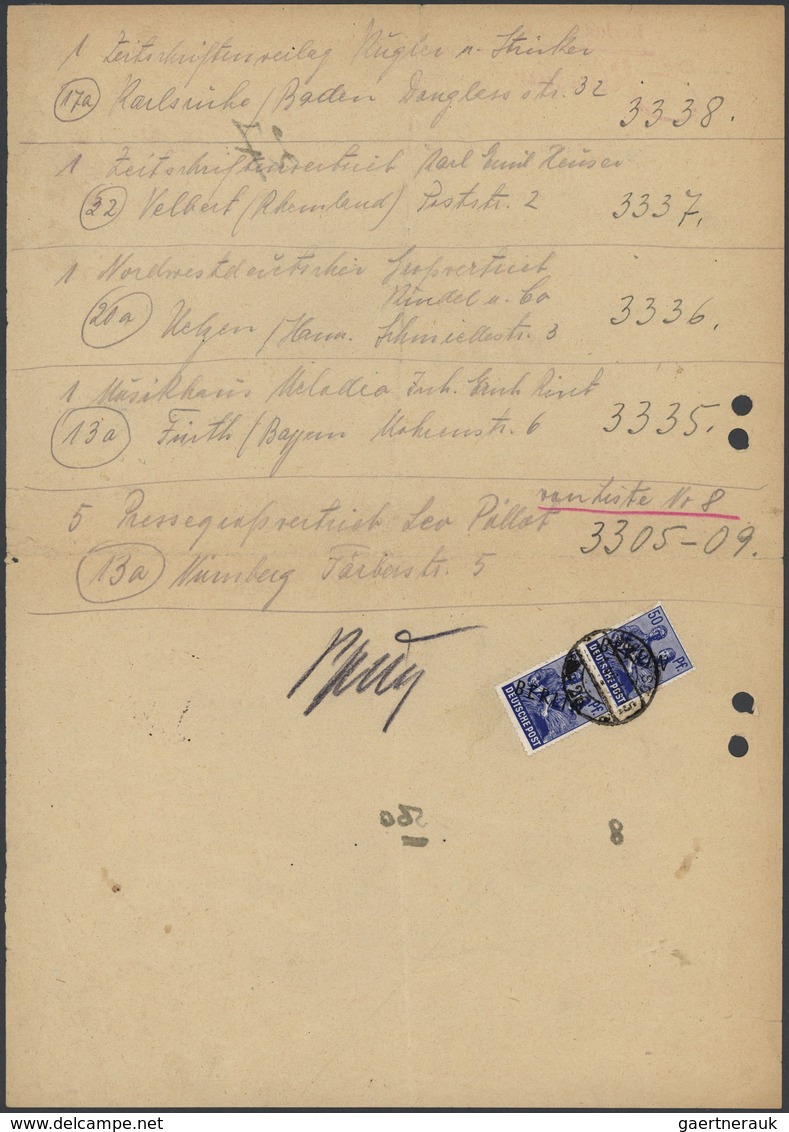 1 Zeitschriftenverlag Kugler u. Strieker
17a Karlsruhe / Baden Douglass str. 32 3338.
1 Zeitschriftenvertrieb Karl Emil Heuser
22 Velbert (Rheinland) Poststr. 2 3337.
1 Nordwestdeutscher Großvertrieb
Kindel u. Co
20a Uelzen / Hann. Schmiedestr. 3 3336.
1 Musikhaus Melodia Inh. Erich
13a Fürth / Bayern Mohrenstr. 6 3335.
von Liste Nr 8
5 Pressegroßvertrieb Leo 3305-09.
13a Nürnberg Färberstr. 5
50 Pf.
DEUTSCHE POST
BERLIN
Pf.
DEUTSCHE POST
560
8
delcampe.net
gaertnerauk